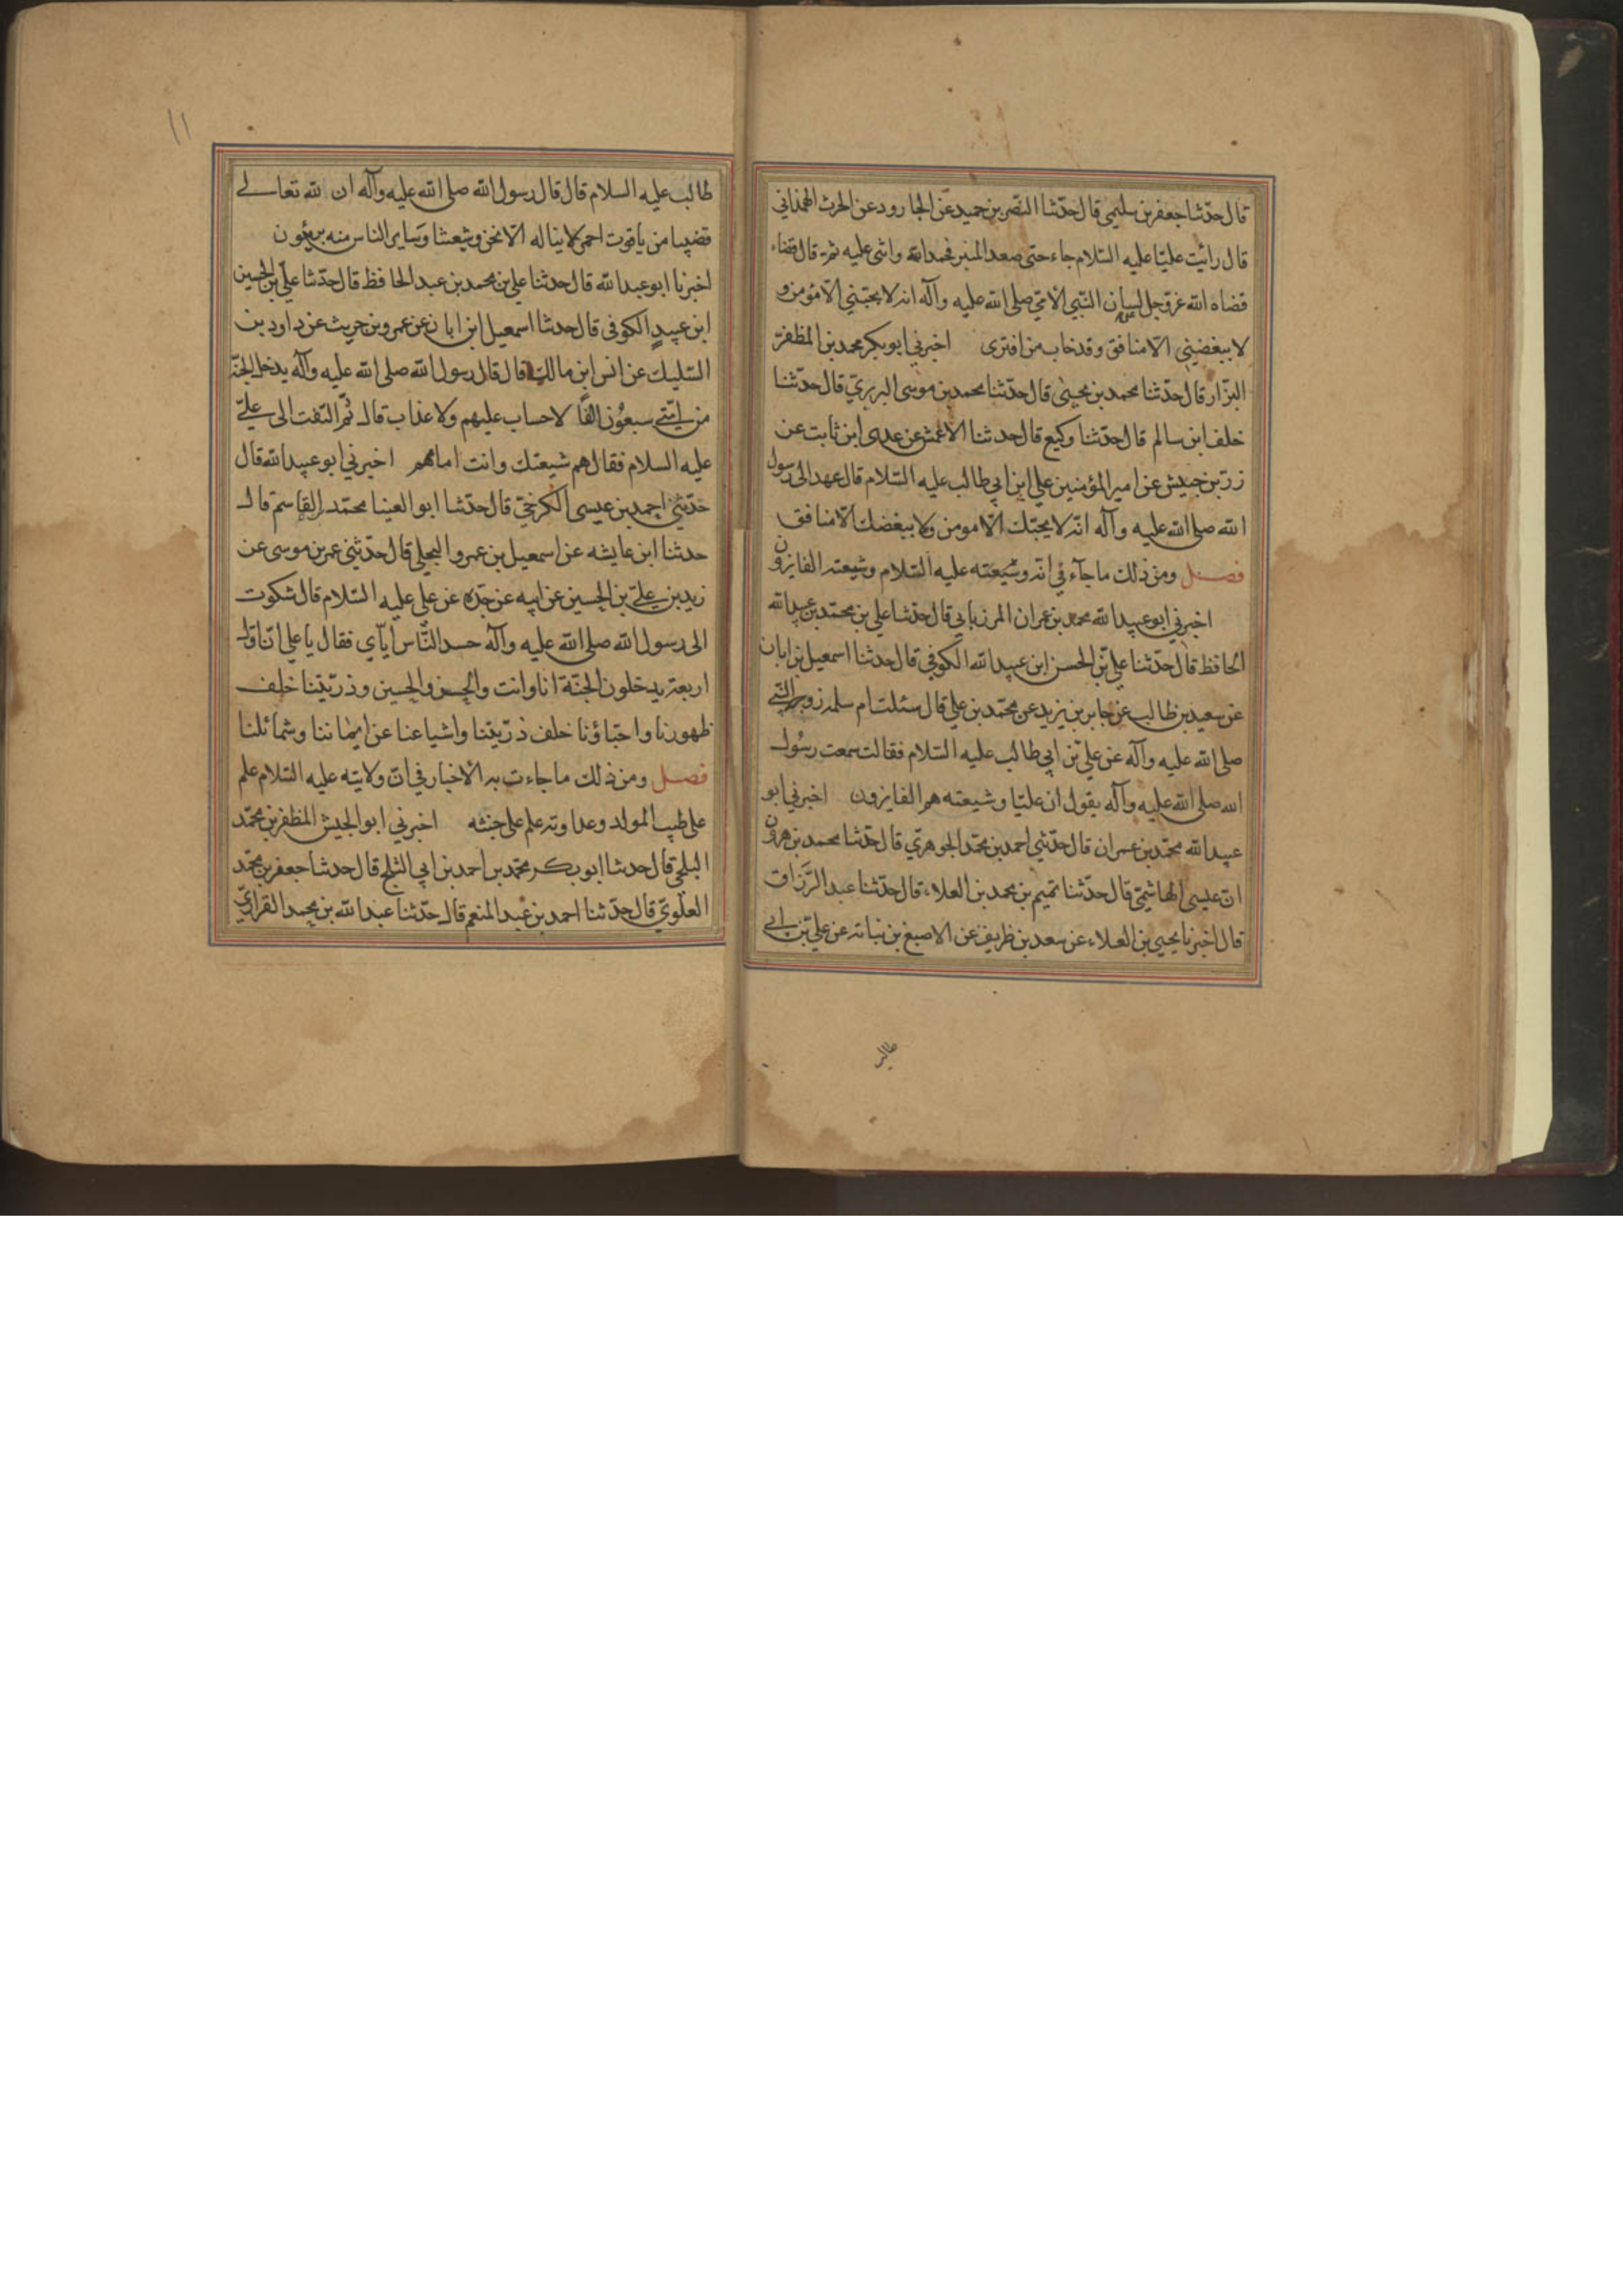 قال حدّثنا جعفر بن سليمى قال حدّثنا النضر بن حميد عن الجارود عن الحرث الهمذاني
قال رائيت عليّا عليه السّلام جاء حتى صعد المنبر فحمد الله واثنى عليه ثم قال قضاء
قضاه الله عزّ وجل لسان النّبي الامّي صلى الله عليه وآله انه لا يحبّني الّا مؤمن و
لا يبغضيني الا منافق وقد خاب من افترى اخبرني ابو بكر محمد بن المظفر
البزّار قال حدّثنا محمد بن يحيى قال حدّثنا محمد بن موسى البربريّ قال حدّثنا
خلف ابن سالم قال حدّثنا وكيع قال حدثنا الاعمش عن عدى ابن ثابت عن
زرّ بن حبيش عن امير المؤمنين علي ابن ابي طالب عليه السّلام قال عهد الى رسول
الله صلى الله عليه وآله انّه لا يحبّك الّا مومن ولا يبغضك الّا منافق
فصــل ومن ذلك ما جآء في انّه وشيعته عليه السّلام وشيعته الفايزون
اخبرني ابو عبيد الله محمد بن عمران المرزباني قال حدّثنا علي بن محمّد بن عبيد الله
الحافظ قال حدّثنا علي بن الحسن ابن عبيد الله الكوفي قال حدثنا اسمعيل بن ابان
عن سعيد بن طالب عن جابر بن يزيد عن محمّد بن علي قال سئلت ام سلمه زوجه النّبي
صلى الله عليه وآله عن علي بن ابي طالب عليه السّلام فقالت سمعت رسُول
الله صلى الله عليه وآله يقول ان عليّا وشيعته هم الفايزون اخبرني ابو
عبيد الله محمّد بن عمران قال حدّثني احمد بن محمّد الجوهريّ قال حدّثنا محمد بن هرون
ابن عيسى الهاشميّ قال حدّثنا تميم بن محمد بن العلاء قال حدّثنا عبد الرّزاق
قال اخبرنا يحيى بن العلاء عن سعد بن طريف عن الاصبغ بن نباته عن علي بن ابي
طالب
١١
طالب عليه السلام قال قال رسول الله صلى الله عليه وآله ان لله تعالى
قضيبا من ياقوت احمر لا يناله الّا نحن وشيعتنا وساير الناس منه بريئون
اخبرنا ابو عبد الله قال حدثنا علي بن محمد بن عبد الحافظ قال حدّثنا علي بن الحسين
ابن عبيد الكوفى قال حدثنا اسمعيل ابن ابان عن عمرو بن حريث عن داود بن
السّليك عن انس ابن مالك قال قال رسول الله صلى الله عليه وآله يدخل الجنّة
من امّتي سبعُون الفًا لا حساب عليهم ولا عذاب قال ثُمّ التفت الى عليّ
عليه السلام فقال هم شيعتك وانت امامهم اخبرني ابو عبيد الله قال
حدّثني احمد بن عيسى الكرخيّ قال حدّثنا ابو العينا محمّد القاسم قال
حدثنا ابن عايشه عن اسمعيل بن عمرو البجلي قال حدّثني عمر بن موسى عن
زيد بن عليّ بن الحسين عن ابيه عن جدّه عن علي عليه السّلام قال شكوت
الى رسول الله صلى الله عليه وآله حسد النّاس ايّاي فقال يا علي انّ اوّل
اربعة يدخلون الجنّة انا وانت والحسن والحسين وذرّيتنا خلف
ظهورنا واحبّاؤنا خلف ذرّيتنا واشياعنا عن ايماننا وشمائلنا
فصــل ومن ذلك ما جاءت به الاخبار في انّ ولايته عليه السّلام علم
على طيب المولد وعداوته علم على خبثه اخبرني ابو الجيش المظفر بن محمّد
البلخي قال حدثنا ابو بكر محمّد بن احمد بن ابي الثلج قال حدثنا جعفر بن محمّد
العلويّ قال حدّثنا احمد بن عبد المنعم قال حدّثنا عبد الله بن محمد الفزاريّ